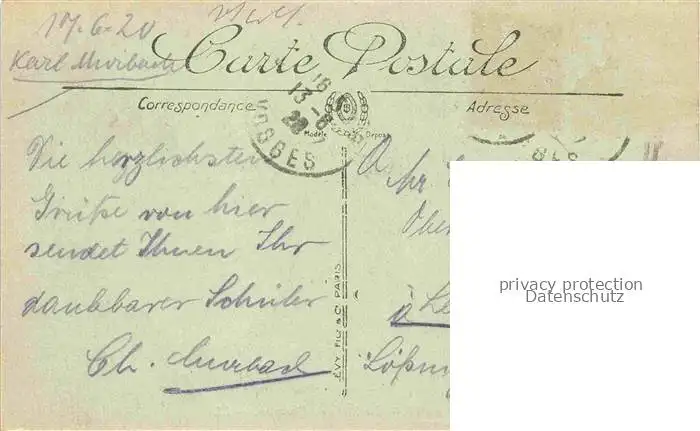 17.6.20
Karl Murbach
Carte Postale
Correspondance
Adresse
16
13-6
20
VOSGES
Modèle Déposé
Die herzlichsten
Grüße von hier
sendet Ihnen Ihr
dankbarer Schüler
Ch. Murbach
LEVY FILS & Cie PARIS
A
Mr
Ober
à Le
privacy protection
Datenschutz